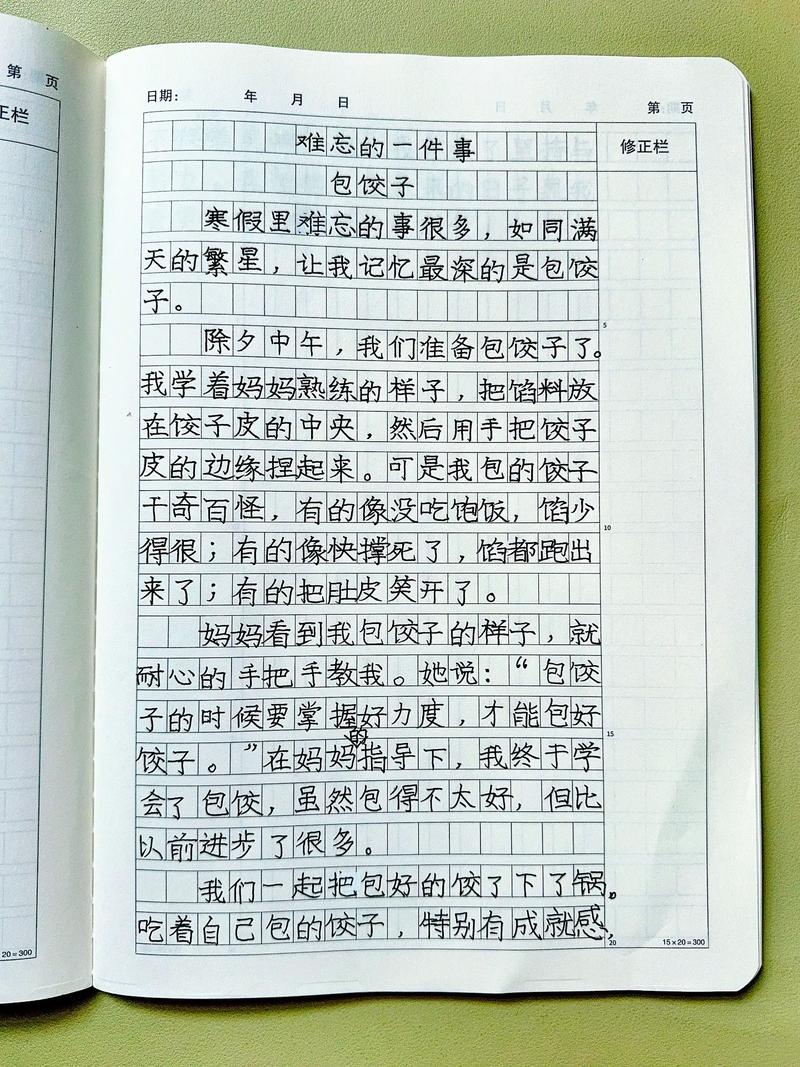 第 页
正栏
20=300
日期: 年 月 日 第 页
修正栏
难忘的一件事
包饺子
寒假里难忘的事很多，如同满
天的繁星，让我记忆最深的是包饺
子。
除夕中午，我们准备包饺子了。
5
我学着妈妈熟练的样子，把馅料放
在饺子皮的中央，然后用手把饺子
皮的边缘捏起来。可是我包的饺子
千奇百怪，有的像没吃饱饭，馅少
10
得很；有的像快撑死了，馅都跑出
来了；有的把肚皮笑开了。
妈妈看到我包饺子的样子，就
耐心的手把手教我。她说：“包饺
子的时候要掌握好力度，才能包好
15
饺子。”在妈妈的指导下，我终于学
会了包饺，虽然包得不太好，但比
以前进步了很多。
我们一起把包好的饺了下了锅。
吃着自己包的饺子，特别有成就感，
20
15×20=300